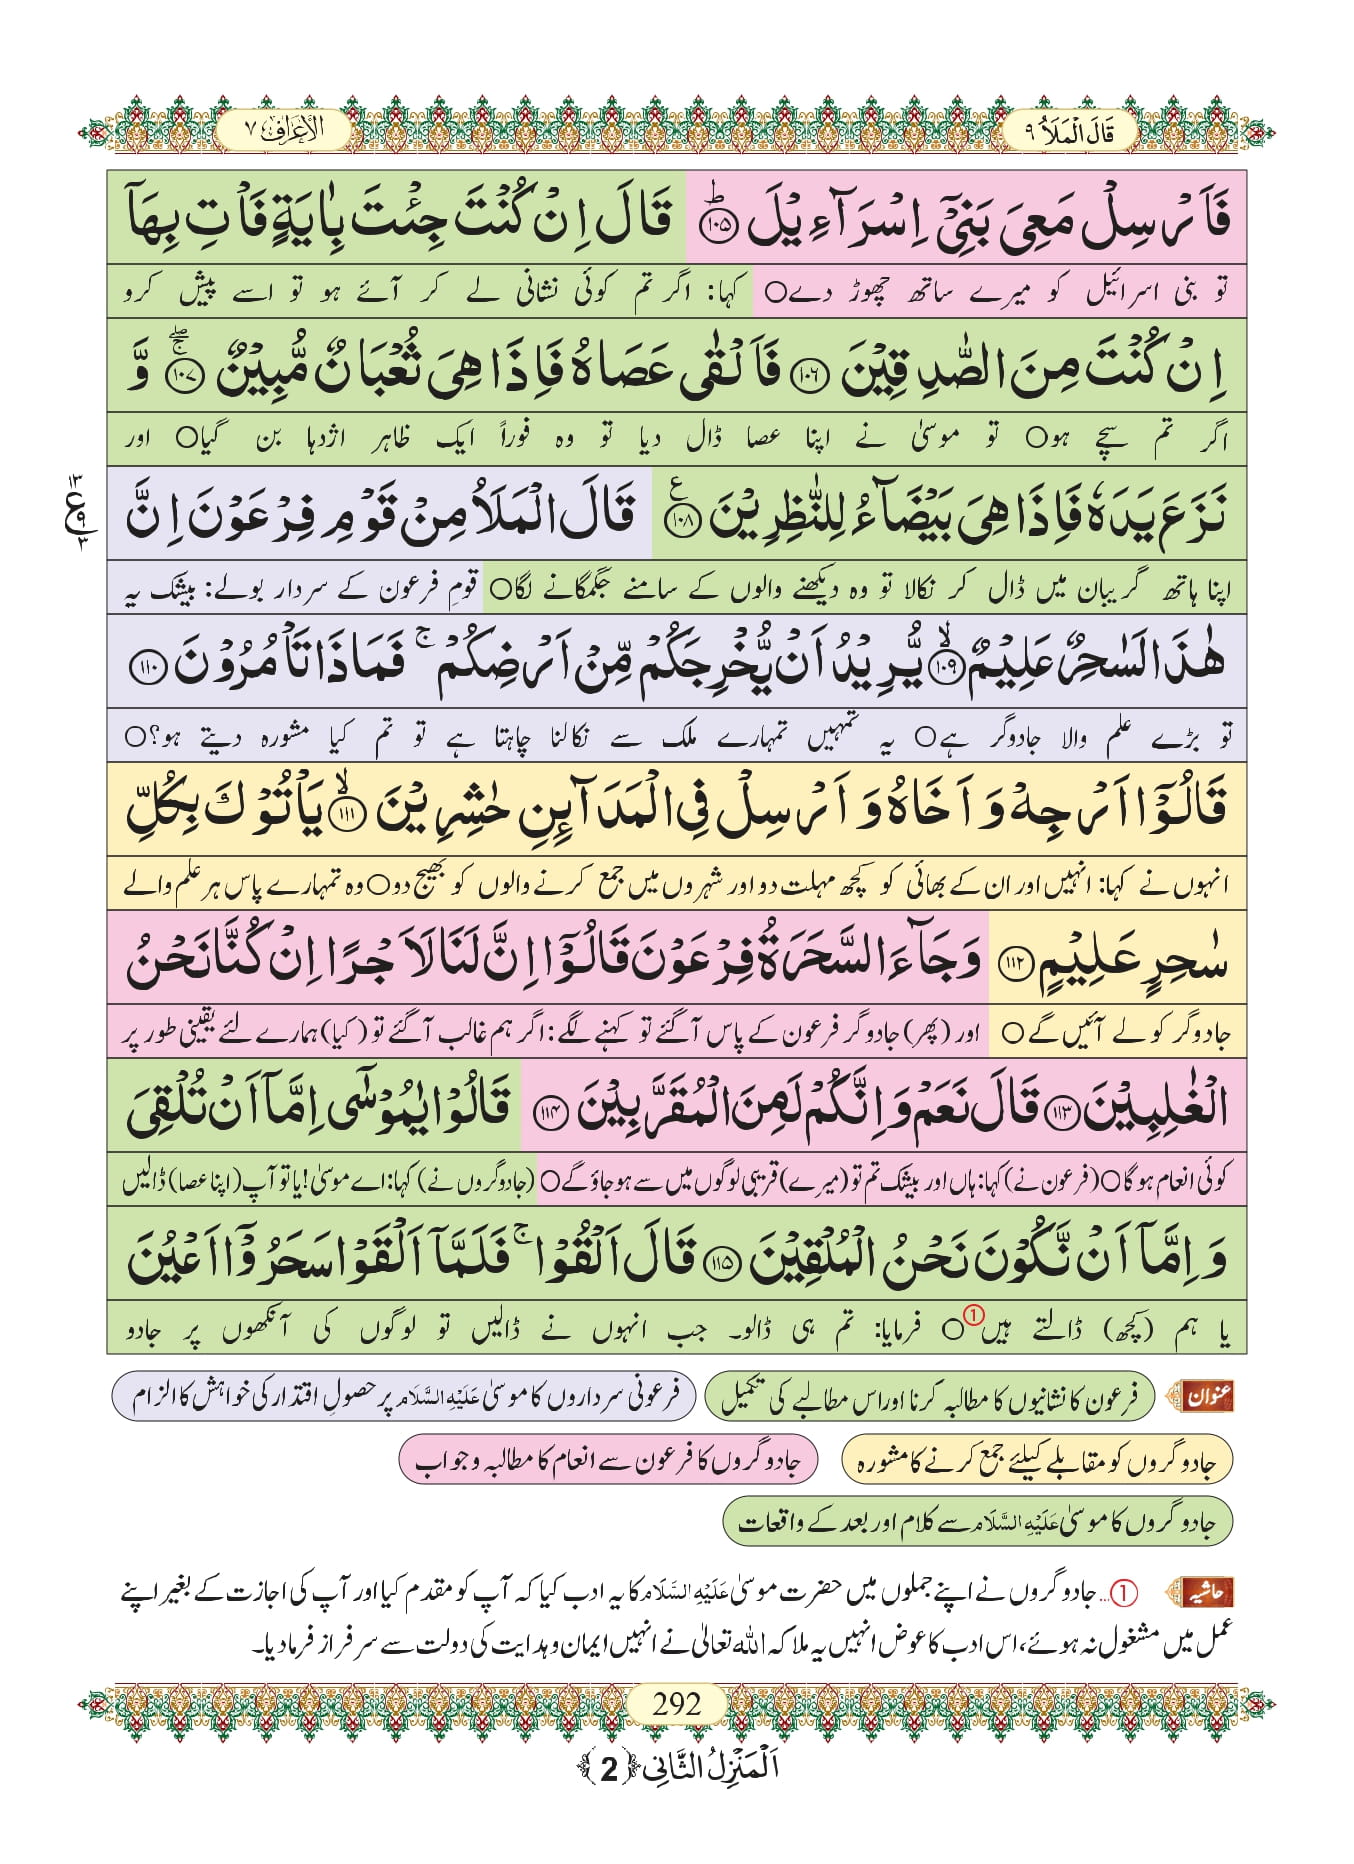 قَالَ الْمَلَاُ ۹
الْاَعْرَاف ۷
فَاَرْسِلْ مَعِیَ بَنِیْۤ اِسْرَآءِیْلَؕ۝۱۰۵ قَالَ اِنْ كُنْتَ جِئْتَ بِاٰیَةٍ فَاْتِ بِهَاۤ
تو بنی اسرائیل کو میرے ساتھ چھوڑ دے○ کہا: اگر تم کوئی نشانی لے کر آئے ہو تو اسے پیش کرو
اِنْ كُنْتَ مِنَ الصّٰدِقِیْنَ۝۱۰۶ فَاَلْقٰى عَصَاهُ فَاِذَا هِیَ ثُعْبَانٌ مُّبِیْنٌۚۖ۝۱۰۷ وَّ
اگر تم سچے ہو○ تو موسیٰ نے اپنا عصا ڈال دیا تو وہ فوراً ایک ظاہر اژدہا بن گیا○ اور
نَزَعَ یَدَهٗ فَاِذَا هِیَ بَیْضَآءُ لِلنّٰظِرِیْنَ۝۱۰۸ع قَالَ الْمَلَاُ مِنْ قَوْمِ فِرْعَوْنَ اِنَّ
۱۳
ع ۹
۳
اپنا ہاتھ گریبان میں ڈال کر نکالا تو وہ دیکھنے والوں کے سامنے جگمگانے لگا○ قومِ فرعون کے سردار بولے: بیشک یہ
هٰذَا لَسٰحِرٌ عَلِیْمٌۙ۝۱۰۹ یُّرِیْدُ اَنْ یُّخْرِجَكُمْ مِّنْ اَرْضِكُمْۚ فَمَا ذَا تَاْمُرُوْنَ۝۱۱۰
تو بڑے علم والا جادوگر ہے○ یہ تمہیں تمہارے ملک سے نکالنا چاہتا ہے تو تم کیا مشورہ دیتے ہو؟○
قَالُوْۤا اَرْجِهْ وَ اَخَاهُ وَ اَرْسِلْ فِی الْمَدَآىٕنِ حٰشِرِیْنَۙ۝۱۱۱ یَاْتُوْكَ بِكُلِّ
انہوں نے کہا: انہیں اور ان کے بھائی کو کچھ مہلت دو اور شہروں میں جمع کرنے والوں کو بھیج دو○ وہ تمہارے پاس ہر علم والے
سٰحِرٍ عَلِیْمٍ۝۱۱۲ وَ جَآءَ السَّحَرَةُ فِرْعَوْنَ قَالُوْۤا اِنَّ لَنَا لَاَجْرًا اِنْ كُنَّا نَحْنُ
جادوگر کو لے آئیں گے○ اور (پھر) جادوگر فرعون کے پاس آگئے تو کہنے لگے: اگر ہم غالب آگئے تو (کیا) ہمارے لئے یقینی طور پر
الْغٰلِبِیْنَ۝۱۱۳ قَالَ نَعَمْ وَ اِنَّكُمْ لَمِنَ الْمُقَرَّبِیْنَ۝۱۱۴ قَالُوْا یٰمُوْسٰۤى اِمَّاۤ اَنْ تُلْقِیَ
کوئی انعام ہوگا○ (فرعون نے) کہا: ہاں اور بیشک تم تو (میرے) قریبی لوگوں میں سے ہوجاؤ گے○ (جادوگروں نے) کہا: اے موسیٰ! یا تو آپ (اپنا عصا) ڈالیں
وَ اِمَّاۤ اَنْ نَّكُوْنَ نَحْنُ الْمُلْقِیْنَ۝۱۱۵ قَالَ اَلْقُوْاۚ فَلَمَّاۤ اَلْقَوْا سَحَرُوْۤا اَعْیُنَ
یا ہم (کچھ) ڈالتے ہیں① ○ فرمایا: تم ہی ڈالو۔ جب انہوں نے ڈالیں تو لوگوں کی آنکھوں پر جادو
عنوان فرعون کا نشانیوں کا مطالبہ کرنا اور اس مطالبے کی تکمیل فرعونی سرداروں کا موسیٰ عَلَیْہِ السَّلَام پر حصولِ اقتدار کی خواہش کا الزام
جادوگروں کو مقابلے کیلئے جمع کرنے کا مشورہ جادوگروں کا فرعون سے انعام کا مطالبہ و جواب
جادوگروں کا موسیٰ عَلَیْہِ السَّلَام سے کلام اور بعد کے واقعات
حاشیہ ①... جادوگروں نے اپنے جملوں میں حضرت موسیٰ عَلَیْہِ السَّلَام کا یہ ادب کیا کہ آپ کو مقدم کیا اور آپ کی اجازت کے بغیر اپنے
عمل میں مشغول نہ ہوئے، اس ادب کا عوض انہیں یہ ملا کہ اللہ تعالیٰ نے انہیں ایمان و ہدایت کی دولت سے سرفراز فرما دیا۔
292
اَلْمَنْزِلُ الثَّانِی ﴿2﴾